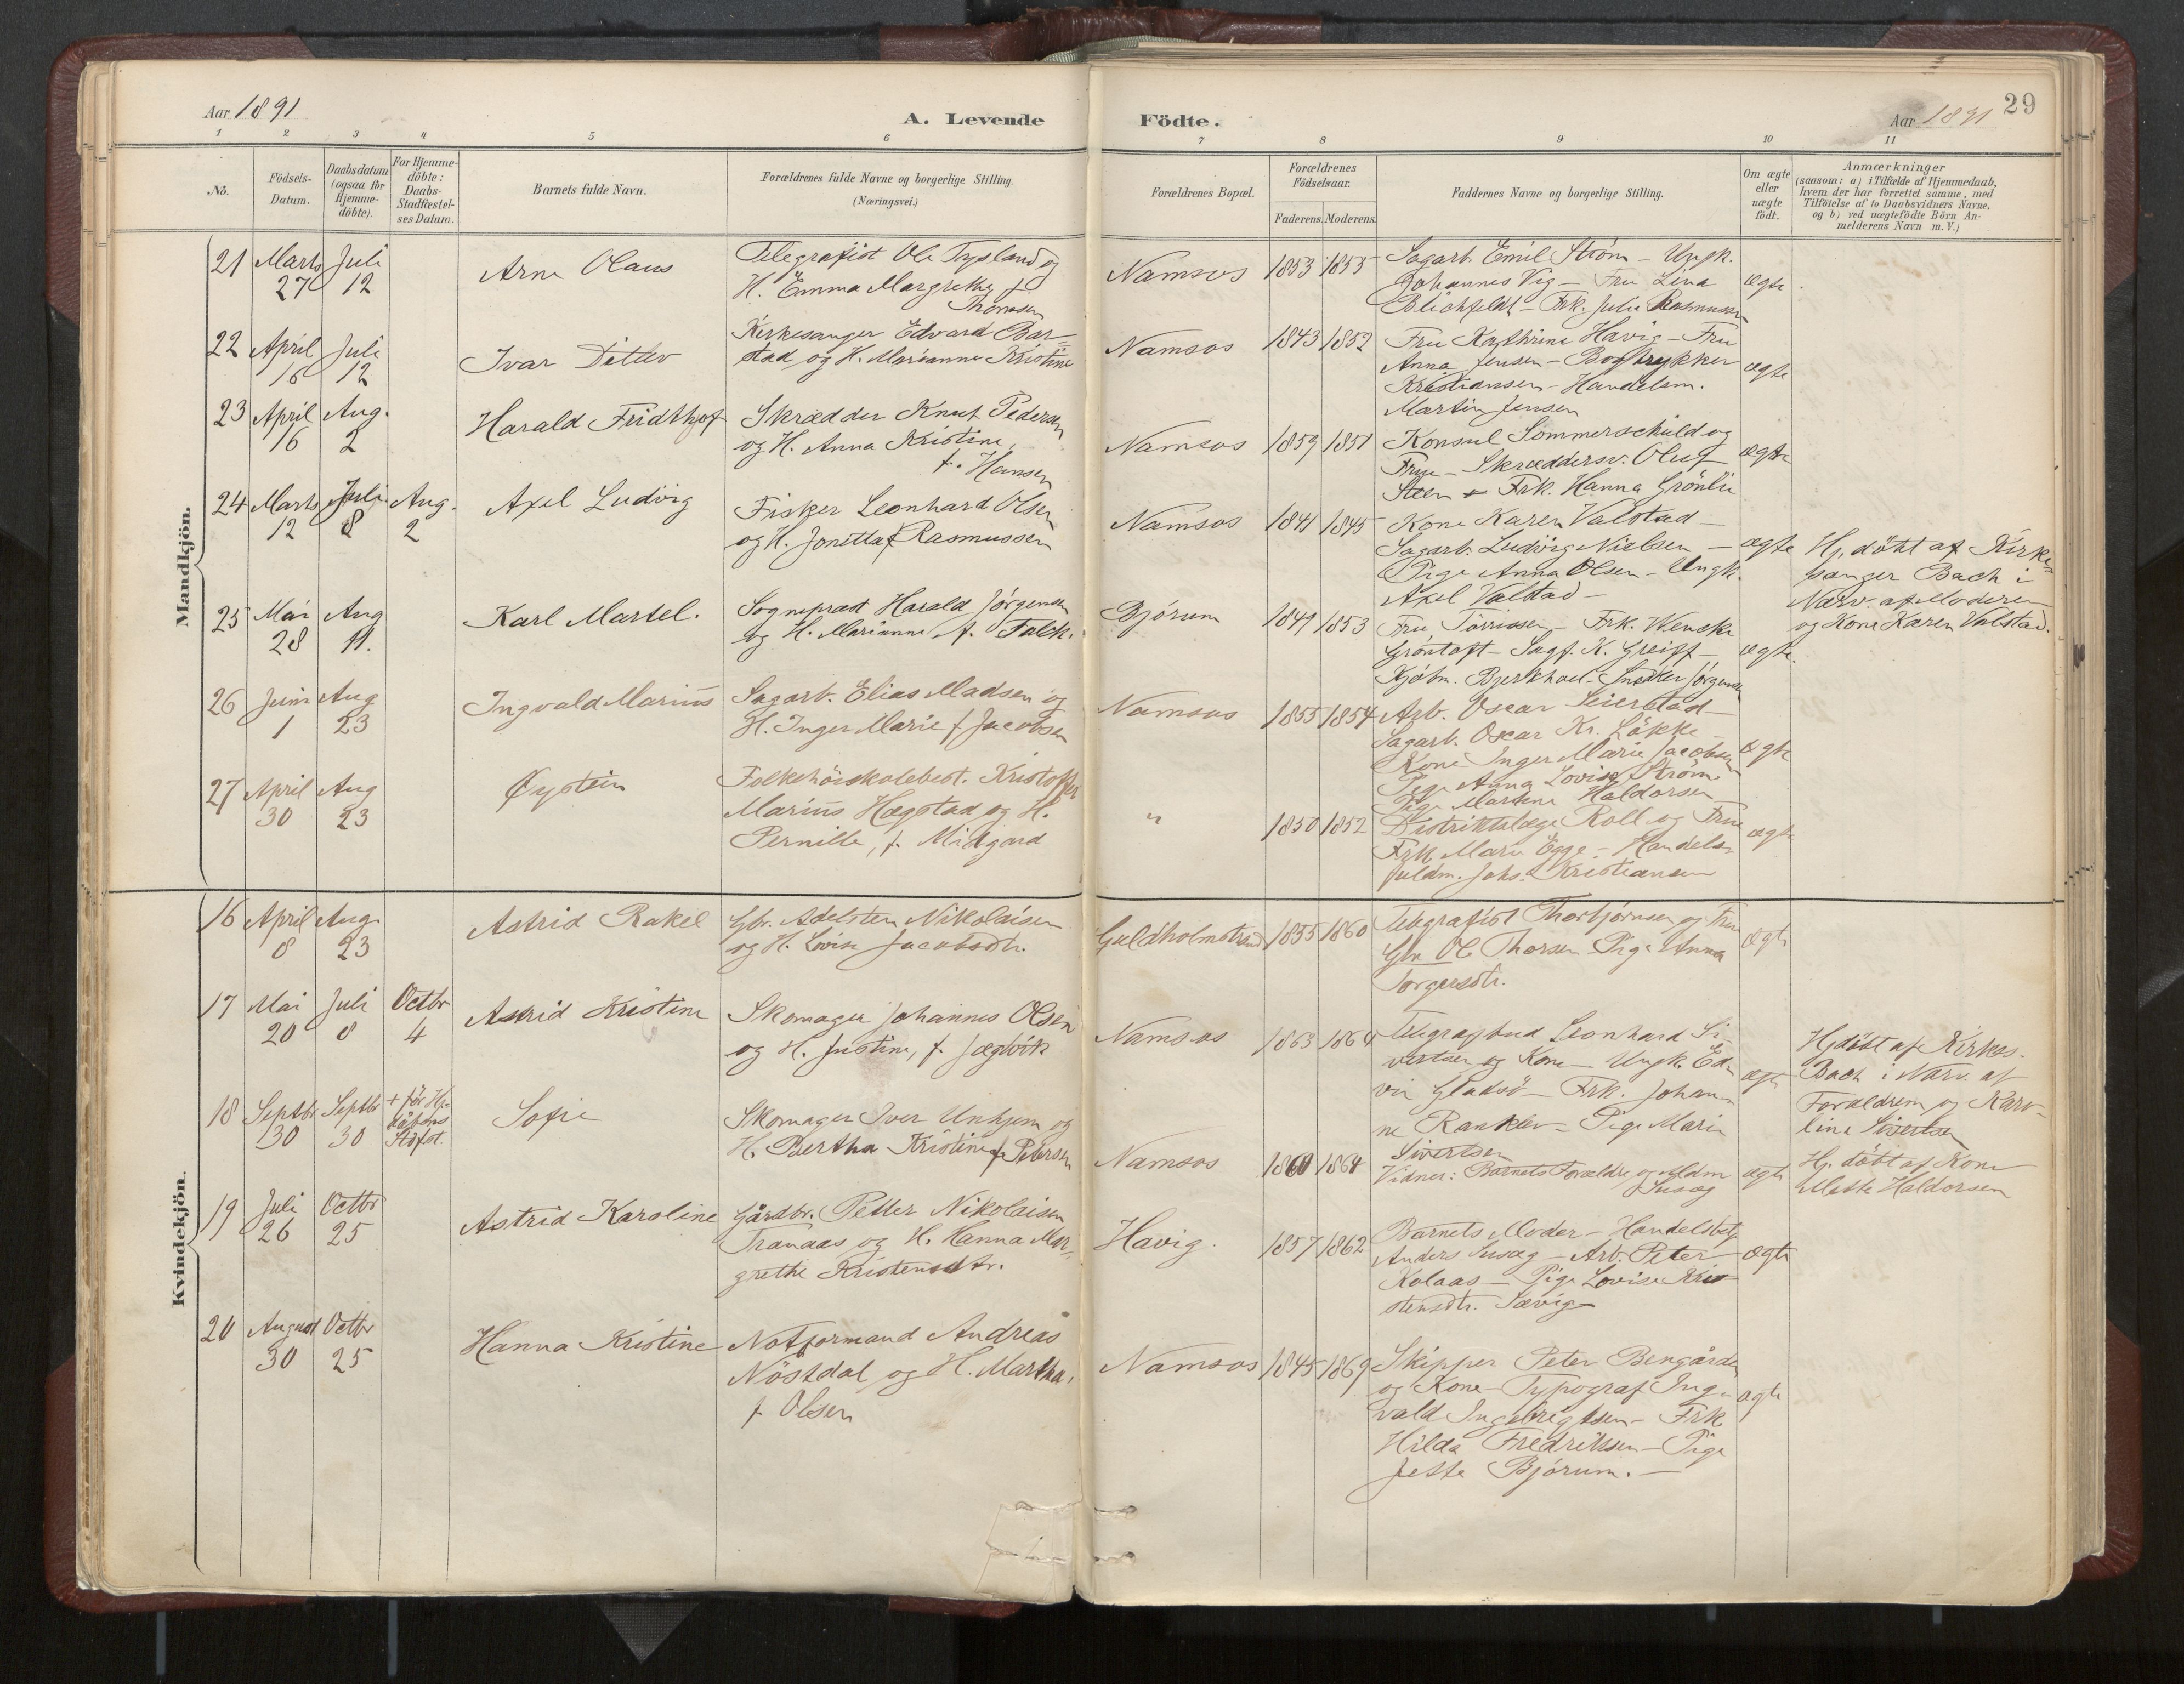 Aar 1891
A. Levende
Födte.
Aar 1891
29
1 2 3 4 5 6 7 8 9 10 11
No.
Födsels-
Datum.
Daabsdatum
(ogsaa for
Hjemme-
döbte).
For Hjemme-
döbte:
Daabs-
Stadfæstel-
ses Datum.
Barnets fulde Navn.
Forældrenes fulde Navne og borgerlige Stilling.
(Næringsvei.)
Forældrenes Bopæl.
Forældrenes
Födselsaar.
Faderens. Moderens.
Faddernes Navne og borgerlige Stilling.
Om ægte
eller
uægte
födt.
Anmærkninger
(saasom: a) i Tilfælde af Hjemmedaab,
hvem der har forrettet samme, med
Tilföielse af to Daabsvidners Navne,
og b) ved uægtefödte Börn An-
melderens Navn m. V.)
Mandkjön.
21 Marts 27 Juli 12
Arne Olaus
Telegrafist Ole Tysland og
H. Emma Margrethe f.
Thomsen
Namsos 1853 1855
Sagarb. Emil Strøm - Ungk.
Johannes Vig - Fru Lina
Blichfeldt - Frk. Julie Rasmussen
ægte
22 April 16 Juli 12
Ivar Ditlev
Kirkesanger Edvard Bar-
stad og H. Marianne Kristine
Namsos 1843 1852
Fru Kathrine Havig - Fru
Anna Jensen - Bogtrykker
Kristiansen - Handelsm.
Martin Jensen
ægte
23 April 16 Aug. 2
Harald Fridthjof
Skrædder Knut Pedersen
og H. Anna Kristine,
f. Hansen
Namsos 1859 1851
Konsul Sommerschield og
Frue - Skræddersv. Oluf
Steen - Frk. Hanna Grönlie
ægte
24 Marts 12 Juli 8 Aug. 2
Axel Ludvig
Fisker Leonhard Olsen
og H. Jonetta f. Rasmussen
Namsos 1841 1845
Kone Karen Valstad -
Sagarb. Ludvig Nielsen -
Pige Anna Olsen - Ungk.
Axel Valstad -
ægte
Hj. döbt af Kirke-
sanger Bach i
Nærv. af Moderen
og Kone Karen Valstad.
25 Mai 28 Aug 11.
Karl Martel.
Sognepræst Harald Jörgensen
og H. Marianne f. Falck.
Bjórum 1849 1853
Fru Tórrissen - Frk. Wencke
Gróntoft - Sagf. K. Greiff -
Kjöbm. Bjerkhoel - Snedker Jörgensen
ægte.
26 Juni 1 Aug 23
Ingvald Marius
Sagarb. Elias Madsen og
H. Inger Marie f. Jacobsen
Namsos 1855 1854
Arb. Oscar Seierstad -
Sagarb. Oscar Kr. Lökke -
Kone Inger Marie Jacobsen
Pige Anna Lovise Strøm
Pige Martine Haldorsen
ægte
27 April 30 Aug 23
Øystein
Folkehöiskolebest. Kristoffer
Marius Hægstad og H.
Pernille, f. Midgard
" 1850 1852
Distriktslæge Roll og Frue
Frk. Marie Egge - Handels-
fuldm. Johs. Kristiansen
ægte
Kvindekjön.
16 April 8 Aug. 23
Astrid Rakel
Gbr. Adelsten Nikolaisen
og H. Lovise Jacobsdtr.
Guldholmstrand 1855 1860
Telegrafist Thorbjørnsen og Frue
Gbr. Ole Thorsen Pige Anna
Torgersdtr.
ægte
17 Mai 20 Juli 8 Octbr 4
Astrid Kristine
Skomager Johannes Olsen
og H. Justine, f. Jægtvik
Namsos 1863 1864
Telegrafbud Leonhard Si-
vertsen og Kone - Ungk. Ed-
vin Gladsö - Frk. Johan-
ne Ranklev - Pige Marie
Sivertsen
ægte
Hj döbt af Kirkes.
Bach i Nærv. af
Forældrene og Karo-
line Sivertsen
18 Septbr 30 Septbr 30 + för Hj.
dåbens
Stadfst.
Sofie
Skomager Iver Unhjem og
H. Bertha Kristine f. Petersen
Namsos 1860 1864
Vidner: Barnets Forældre og Aldm
Susæg
ægte
Hj. döbt af Kone
Mette Haldorsen
19 Juli 26 Octbr 25
Astrid Karoline
Gårdbr. Petter Nikolaisen
Tranaas og H. Hanna Mar-
grethe Kristensdtr.
Havig. 1857 1862
Barnets Moder - Handelsbetj.
Anders Susæg - Arb. Peter
Kolaas - Pige Lovise Kris-
stensdtr. Sævig
ægte
20 August 30 Octbr 25
Hanna Kristine
Notformand Andreas
Nöstdal og H. Martha,
f. Olsen
Namsos 1845 1869
Skipper Peter Bengården
og Kone - Typograf Ing-
vald Ingebrigtsen - Frk.
Hilda Fredriksen - Pige
Jette Bjórum. -
ægte